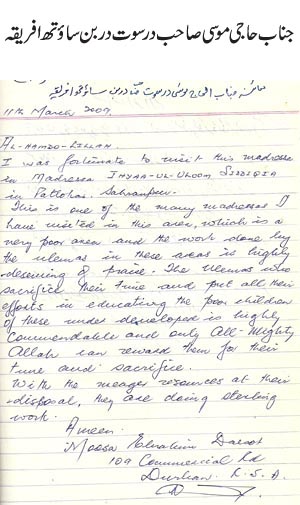 جناب حاجی موسی صاحب درسوت دربن ساؤتھ افریقہ
معائنہ جناب الحاج موسی درسوت دربن ساؤتھ افریقہ
11th March 2009.
AL-HAMDO-LILLAH.
I was fortunate to visit this madressa
in Madressa IHYAA-UL-ULOOM SIDDIQIA
in Sahranpur.
This is one of the many madressas I
have visited in this area, which is a
very poor area and the work done by
the ulemas in these areas is highly
deserving of praise. The Ulemas who
sacrifice their time and put all their
efforts in educating the poor children
of these under developed is highly
Commendable and only All-Mighty
Allah can reward them for their
time and sacrifice.
With the meager resources at their
disposal, they are doing sterling
work.
Ameen.
Moosa Ebrahim Darsot
109 Commercial Rd
Durban R.S.A.